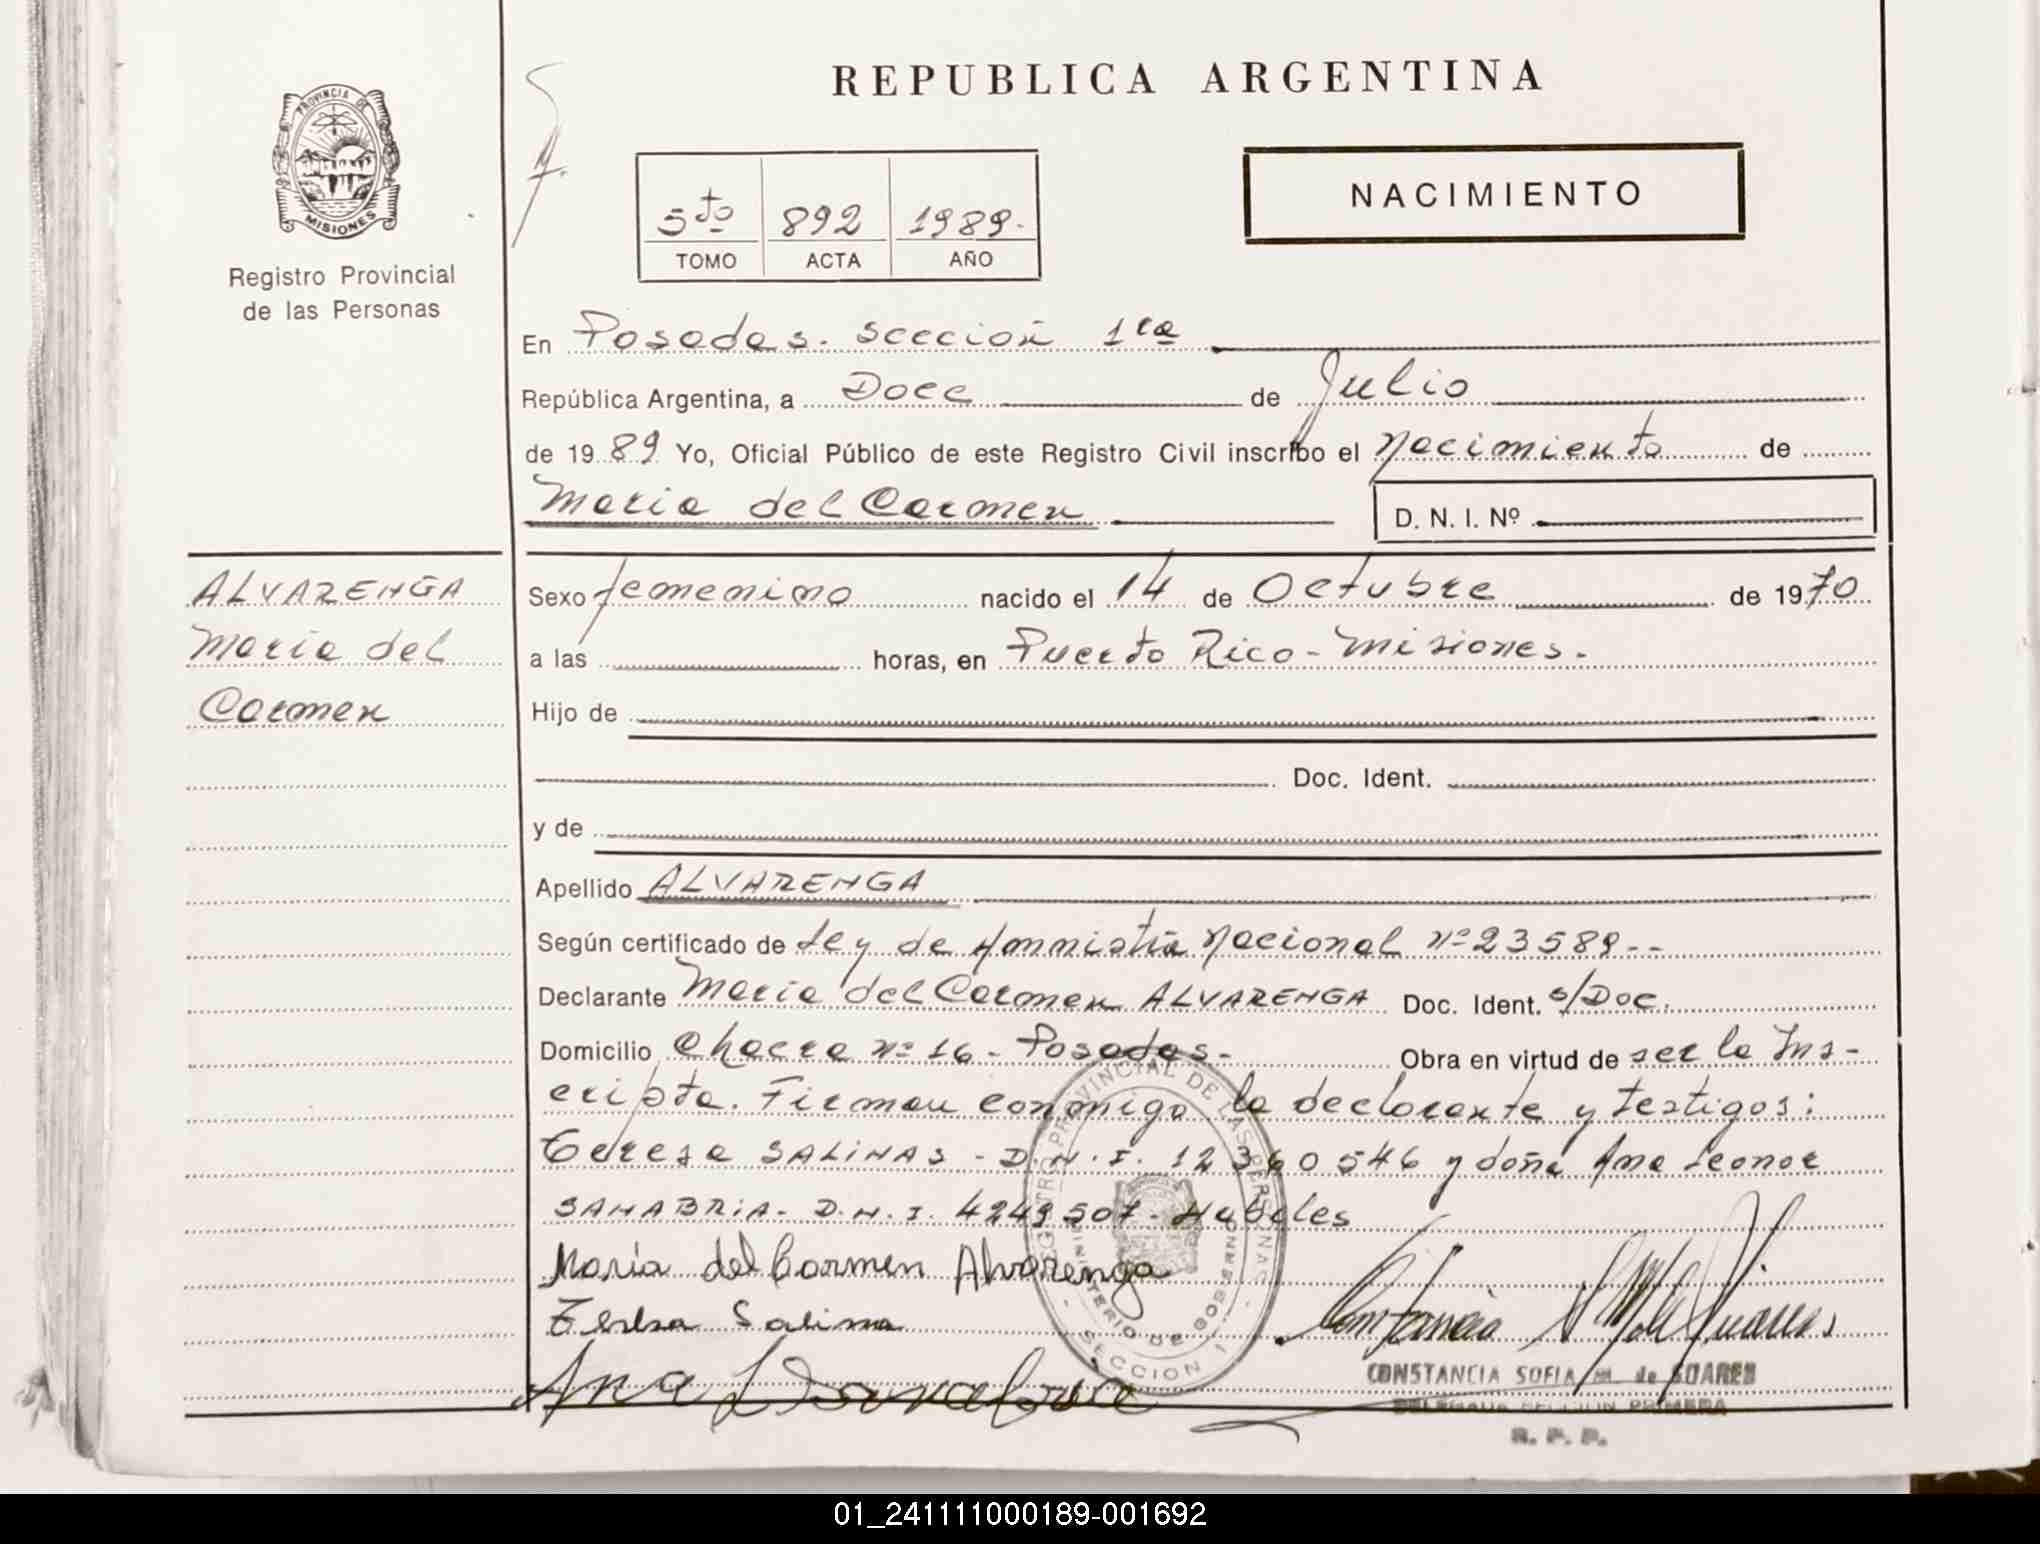 REPUBLICA ARGENTINA
PROVINCIA DE
MISIONES
Registro Provincial
de las Personas
NACIMIENTO
5to 892 1989.
TOMO ACTA AÑO
En Posadas. sección 1ra
República Argentina, a Doce de Julio
de 1989 Yo, Oficial Público de este Registro Civil inscribo el Nacimiento de
Maria del Carmen D. N. I. Nº
ALVARENGA
Maria del
Carmen
Sexo femenino nacido el 14 de Octubre de 1970
a las horas, en Puerto Rico - Misiones.
Hijo de
Doc. Ident.
y de
Apellido ALVARENGA
Según certificado de Ley de Ammistia Nacional nº 23589--
Declarante Maria del Carmen ALVARENGA Doc. Ident. s/Doc.
Domicilio Chacra nº 16 - Posadas. - Obra en virtud de ser la Ins-
cripta. Firman conmigo la declarante y testigos:
Teresa SALINAS - D.N.I. 12360546 y doña Ana Leonor
SANABRIA - D.N.I. 4249507 - Habeles
María del Carmen Alvarenga
Teresa Salina
Ana L Sanabria
REGISTRO PROVINCIAL DE LAS PERSONAS
MINISTERIO DE GOBIERNO
SECCION 1
CONSTANCIA SOFIA M. de SOARES
DELEGADA SECCION PRIMERA
R. P. P.
01_241111000189-001692